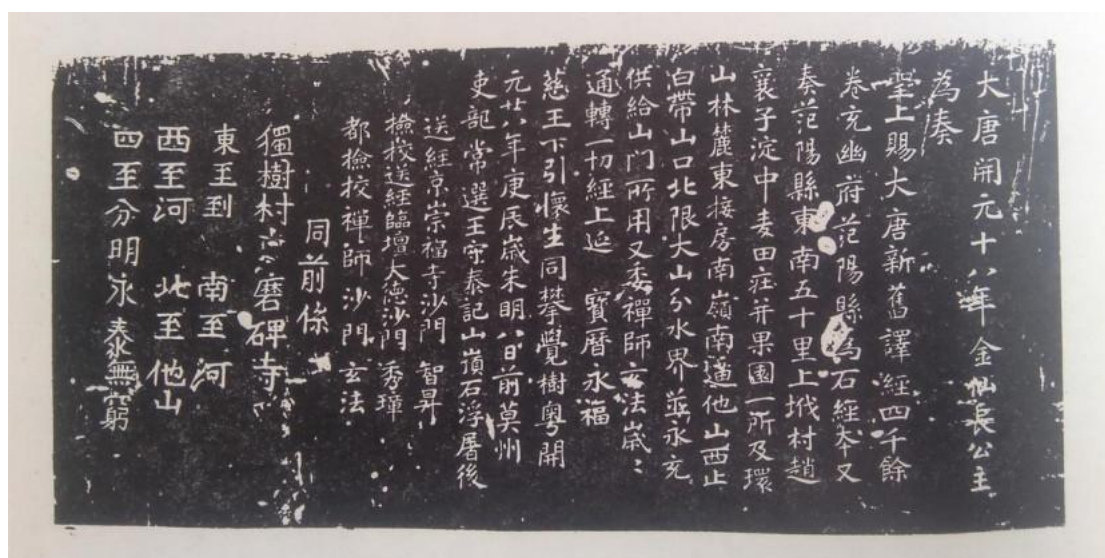 大唐開元十八年金仙長公主
為奏
聖上賜大唐新舊譯經四千餘
卷充幽府范陽縣為石經本又
奏范陽縣東南五十里上垡村趙
襄子淀中麦田庄并果園一所及環
山林麓東接房南嶺南逼他山西止
白帶山口北限大山分水界並永充
供給山門所用又委禪師玄法歲〻
通轉一切經上延寶曆永福
慈王下引懷生同攀覺樹粤開
元廿八年庚辰歲朱明八日前莫州
吏部常選王守泰記山嶺石浮屠後
送經京崇福寺沙門智昇
檢校送經臨壇大德沙門秀璋
都檢校禪師沙門玄法
同前條
獨樹村磨碑寺
東至到南至河
西至河北至他山
四至分明永泰無窮